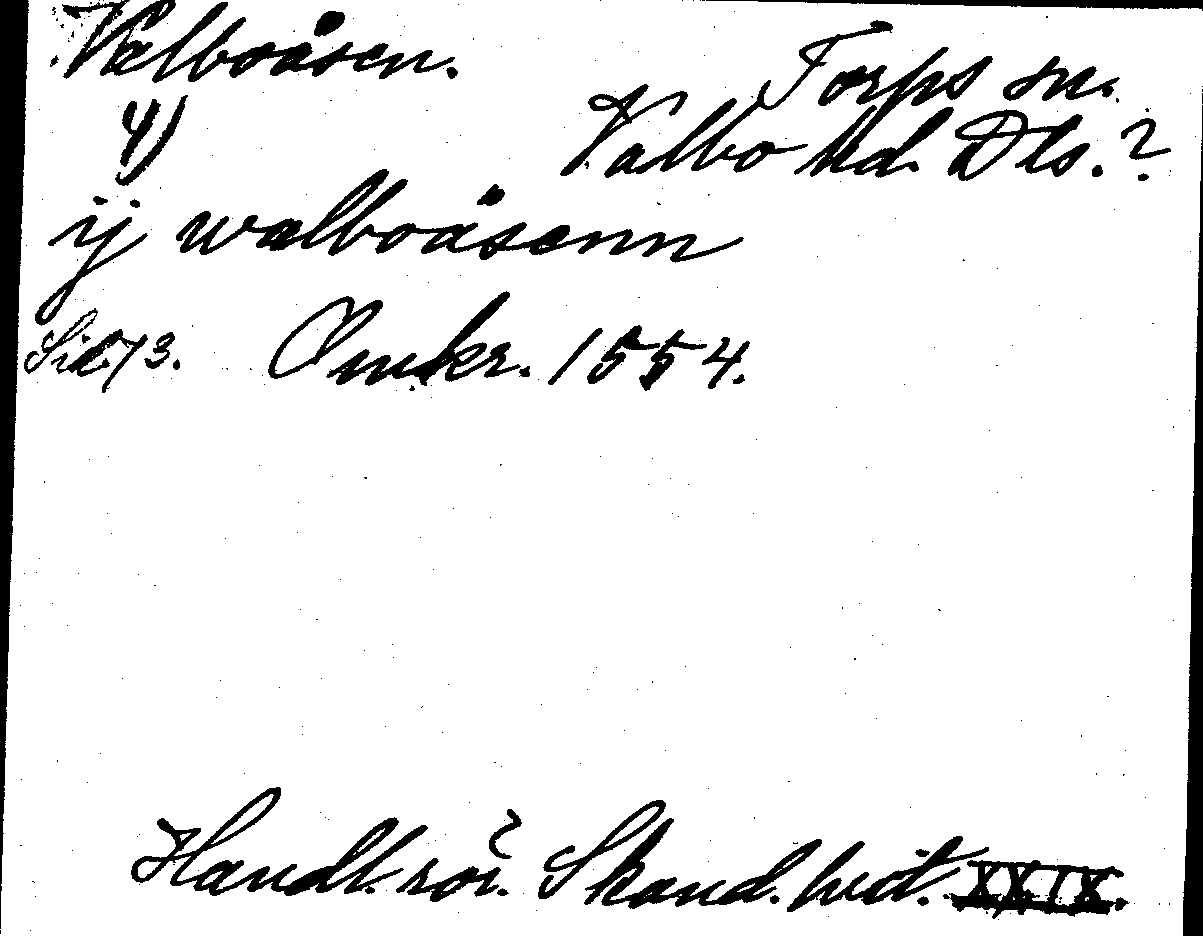 Valboåsen.
Torps sn.
4)
Valbo hd. Dls.?
ij walboåsenn
Sid. 73. Omkr. 1554.
Handl. rör. Skand. hist. XXIX.